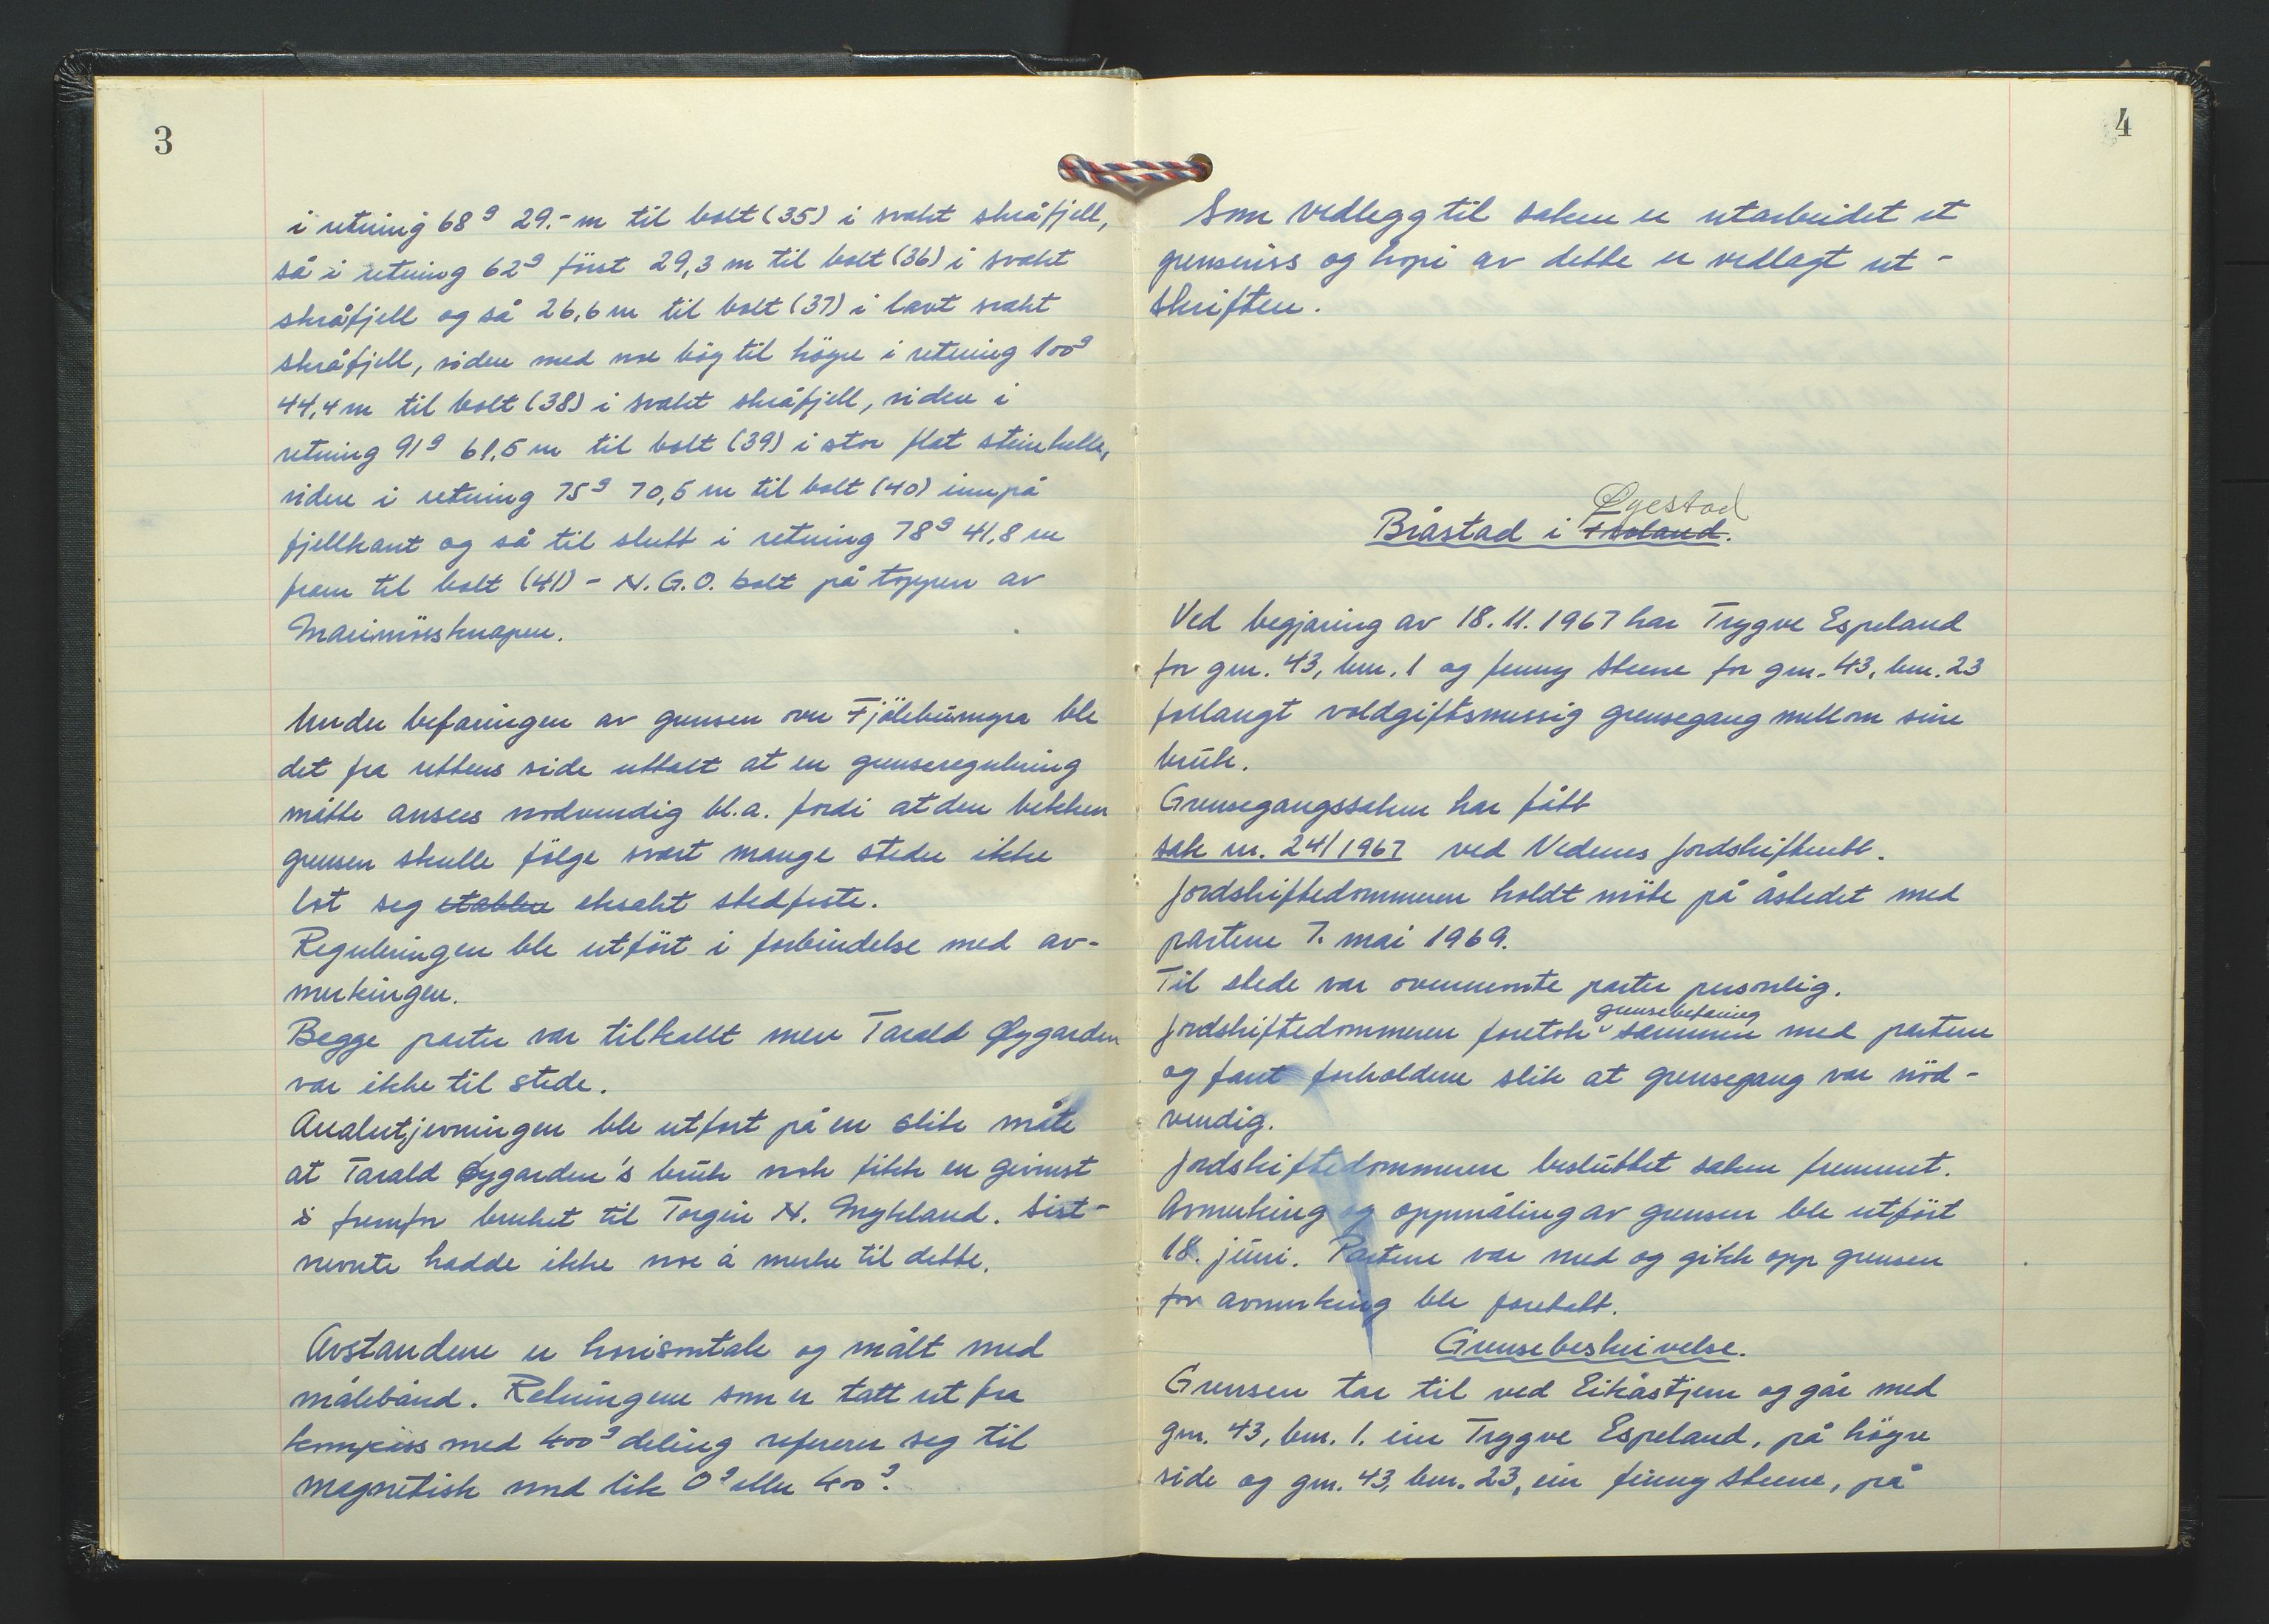 3
i retning 68g 29.- m til bolt (35) i svakt skråfjell,
så i retning 62g först 29,3 m til bolt (36) i svakt
skråfjell og så 26,6 m til bolt (37) i lavt svakt
skråfjell, videre med noe bög til högre i retning 100g
44,4 m til bolt (38) i svakt skråfjell, videre i
retning 91g 61,5 m til bolt (39) i stor flat steinhelle,
videre i retning 75g 70,5 m til bolt (40) innpå
fjellkant og så til slutt i retning 78g 41,8 m
fram til bolt (41) - N.G.O. bolt på toppen av
Under befaringen av grensen over Fjölebumyra ble
det fra rettens side uttalt at en grenseregulering
måtte ansees nodvendig bl.a. fordi at den bekken
grensen skulle fölge svært mange steder ikke
lot seg eksakt stedfeste.
Reguleringen ble utfört i forbindelse med av-
merkingen.
Begge parter var tilkallt men Tarald Øygarden
var ikke til stede.
Arealutjevningen ble utfort på en slik måte
at Tarald Øygarden's bruk nok fikk en gevinst
fremfor bruket til Torgeir N. Mykland. Sist-
nevnte hadde ikke noe å merke til dette.
Avstandene er horisontale og målt med
målebånd. Retningene som er tatt ut fra
kompass med 400g deling refererer seg til
magnetisk nord lik 0g eller 400g.
4
Som vedlegg til saken er utarbeidet et
grenseriss og kopi av dette er vedlagt ut-
skriften.
Øyestad
Bråstad i Froland.
Ved begjæring av 18.11.1967 har Trygve Espeland
for gnr. 43, bnr. 1 og Jenny Steene for gnr. 43, bnr. 23
forlangt voldgiftsmessig grensegang mellom sine
bruk.
Grensegangssaken har fått
sak nr. 24/1967 ved Nedenes jordskifterett.
Jordskiftedommeren holdt möte på åstedet med
partene 7. mai 1969.
Til stede var ovennemte parter personlig.
grensebefaring
Jordskiftedommeren foretok sammen med partene
og fant forholdene slik at grensegang var nöd-
vendig.
Jordskiftedommeren besluttet saken fremmet.
Avmerking og oppmåling av grensen ble utfört
18. juni. Partene var med og gikk opp grensen
för avmerking ble foretatt.
Grensebeskrivelse.
Grensen tar til ved Eikåstjern og går med
gnr. 43, bnr. 1. eier Trygve Espeland, på högre
side og gnr. 43, bnr. 23, eier Jenny Steene, på